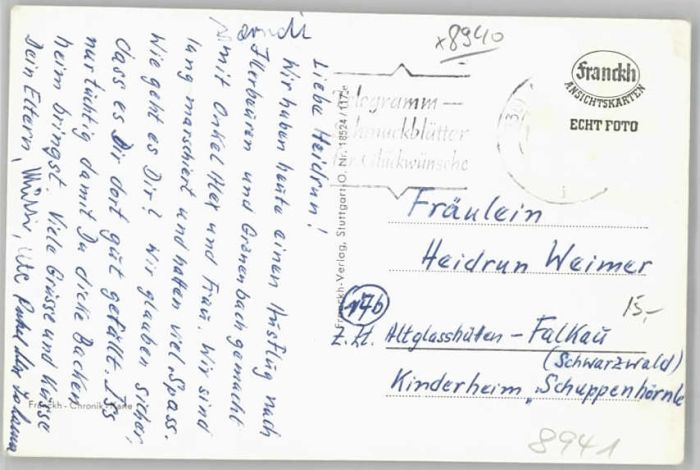 x8940
Franckh
ANSICHTSKARTEN
ECHT FOTO
Telegramm-
Schmuckblätter
für Glückwünsche
Liebe Heidrun!
Wir haben heute einen Ausflug nach
Illerbeuren und Grönenbach gemacht
mit Onkel Alex und Frau. Wir sind
lang marschiert und hatten viel Spass.
Wie geht es Dir? Wir glauben sicher,
dass es Dir dort gut gefällt. Iss
nur tüchtig damit Du dicke Backen
heim bringst. Viele Grüsse und Küsse
Dein Eltern,
Franckh-Verlag, Stuttgart-O. Nr. 18524/1
Franckh-Chronik-Karte
Fräulein
Heidrun Weimer
17b
z. Zt. Altglashütten - Falkau
(Schwarzwald)
Kinderheim „Schuppenhörnle
15,-
8941